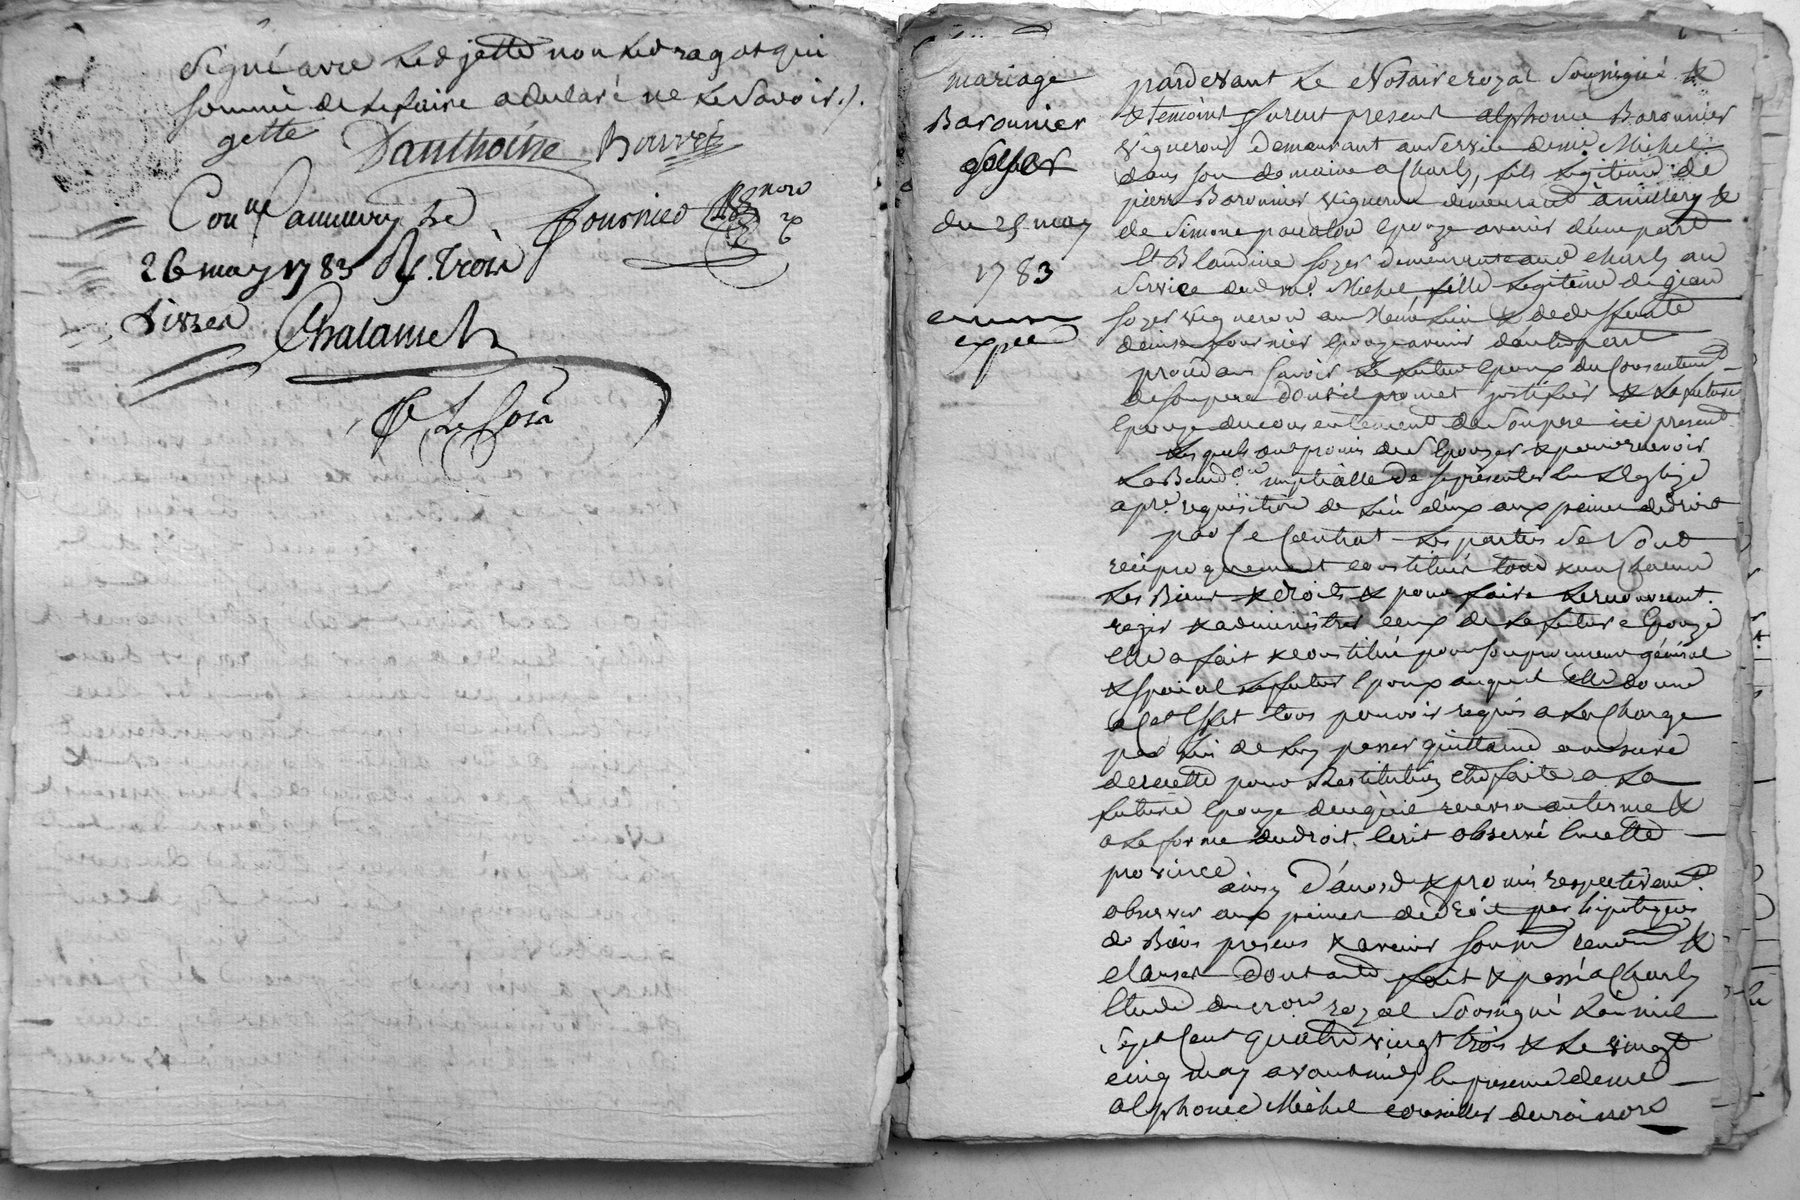 signé avec led gette non led ragot qui
sommé de le faire a déclaré ne le savoir ./.
gette Danthoine Bouvet
Con.lle a annivry le fournier
26 may 1783 Rç trois
livres Chalamel
mariage
Baronnier
du 25 may
1783
expée
pardevant Le Notaire royal soussigné &
& temoins furent present alphonce Baronnier
vigneron demeurant au service de mr. Michel
dans son domaine a Charly, fils legitime de
pierre Baronnier vigneron demeurant a millery &
de Simone epouze avenir d'une part
Et Blandine sozer demeurante aud Charly au
service dud. mr. Michel fille legitime de jean
sozer vigneron au & de deffunte
denise fournier epouze avenir d'autre part
procedans savoir Le futur epoux du Consentement
de son pere dont il promet justifier & La future
epouze du consentement de son pere ici present
Lesquels ont promis de s'epouzer & pour recevoir
La Bened.on nuptialle de se presenter en L'eglize
a pre. requisition de L'un d'eux aux peines de droit
par Ce Contrat Les parties se sont
reciproquement constitué tous & un Chacun
Les Biens & droits & pour faire Le recouvrement.
regir & administrer ceux de La future Epouze
elle a fait & constitué pour son procureur général
& special Le futur Epoux auquel elle donne
a Cet effet tous pouvoir requis a La Charge
par Lui de Luy passer quittance a mesure
de recette pour Restitution etre faite a La
future Epouze de ce qu'il recevra au terme &
a La forme du droit. Ecrit observé en cette
province
ainsy d'accord & promis respectivemt.
observer aux peines de droit par hipoteques
de Biens présens & avenir soum renon &
clauses dont acte fait & passé a Charly
Etude du no.re royal soussigné L'an mil
sept Cent quatre vingt trois & Le vingt
cinq may avant midy en presence de me
alphonce Michel conseiller du roi